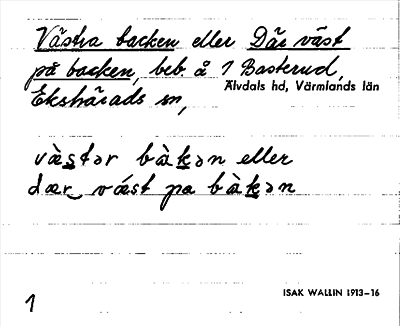 Västra backen eller Där väst
på backen, beb. å 1 Basterud,
Älvdals hd, Värmlands län
Ekshärads sn,
vàstər bàkən eller
dær väst pa bàkən
ISAK WALLIN 1913–16
1